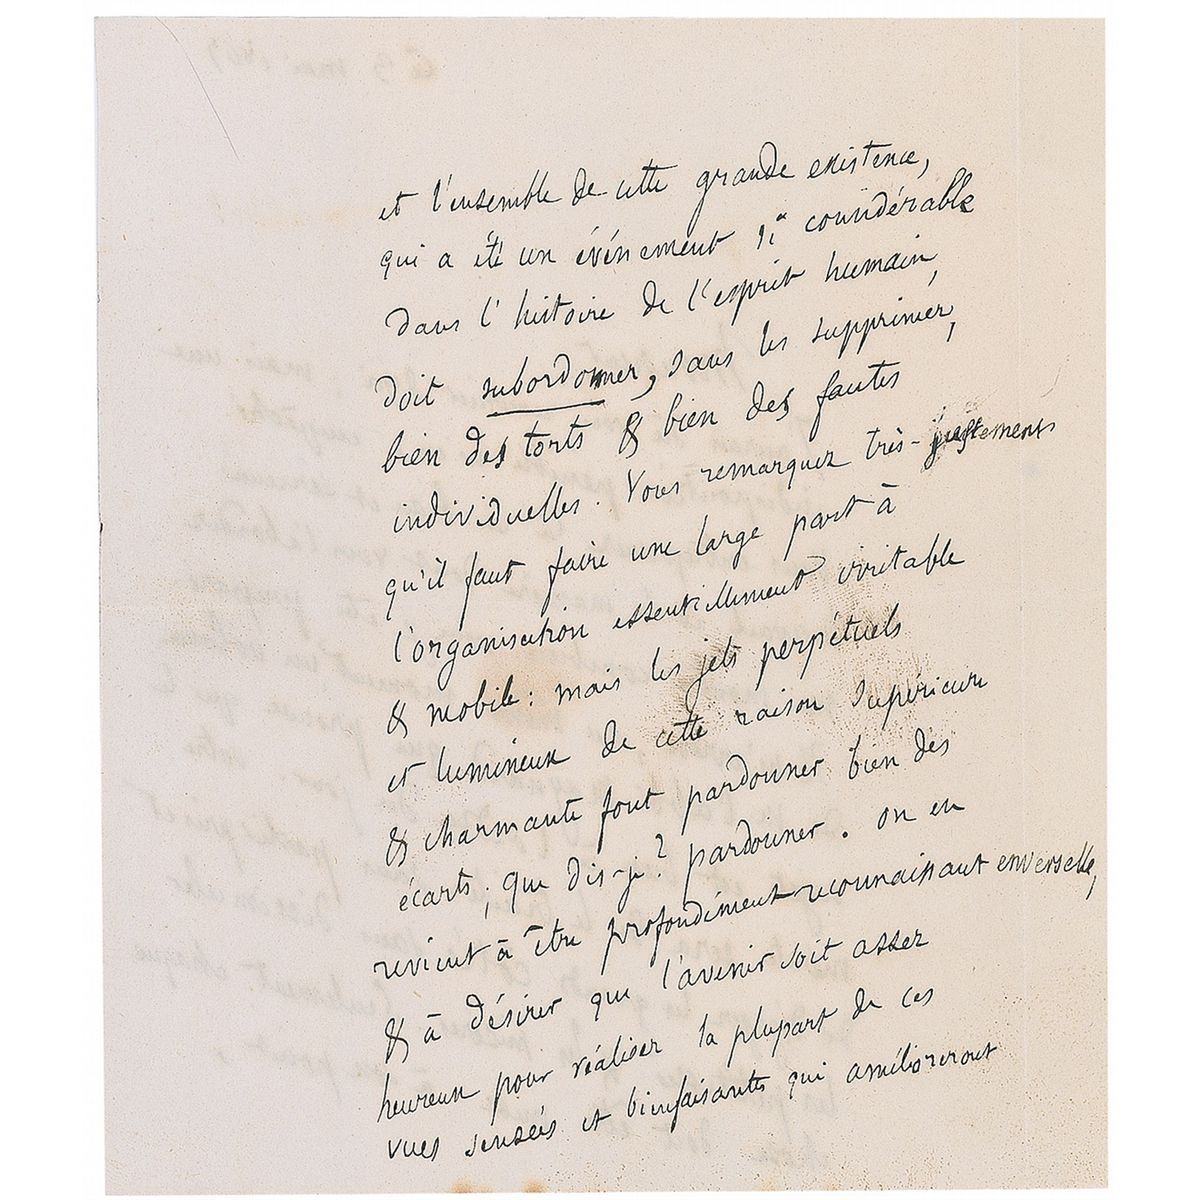 et l'ensemble de cette grande existence,
qui a été un événement si considérable
dans l'histoire de l'esprit humain,
doit subordonner, sans les supprimer,
bien des torts & bien des fautes
individuelles. Vous remarquez très-justement
qu'il faut faire une large part à
l'organisation essentiellement irritable
& mobile : mais les jets perpétuels
et lumineux de cette raison supérieure
& charmante font pardonner bien des
écarts, que dis-je ? pardonner. on en
revient à être profondément reconnaissant envers elle,
& à désirer que l'avenir soit assez
heureux pour réaliser la plupart de ces
vues sensées et bienfaisantes qui amélioreront